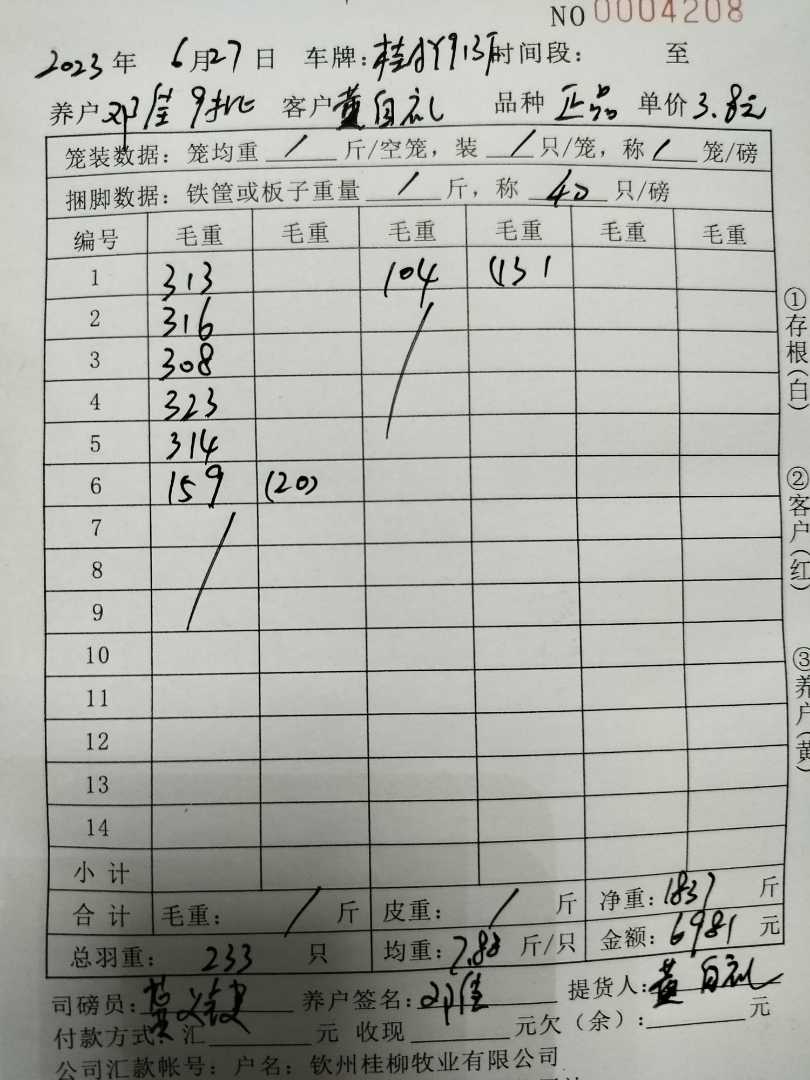 NO 0004208
2023年 6月27日 车牌: 时间段: 至
养户 邓佳 9批 客户 黄自礼 品种 正品 单价 3.8元
笼装数据: 笼均重 / 斤/空笼, 装 / 只/笼, 称 / 笼/磅
捆脚数据: 铁筐或板子重量 / 斤, 称 40 只/磅
编号 毛重 毛重 毛重 毛重 毛重 毛重
1 313 104 (13)
2 316
3 308
4 323
5 314
6 159 (20)
7
8
9
10
11
12
13
14
小计
合计 毛重: / 斤 皮重: / 斤 净重: 1837 斤
总羽重: 233 只 均重: 7.88 斤/只 金额: 6981 元
司磅员: 养户签名: 邓佳 提货人: 黄自礼
付款方式: 汇 元 收现 元欠(余): 元
公司汇款帐号: 户名: 钦州桂柳牧业有限公司
①存根(白)
②客户(红)
③养户(黄)